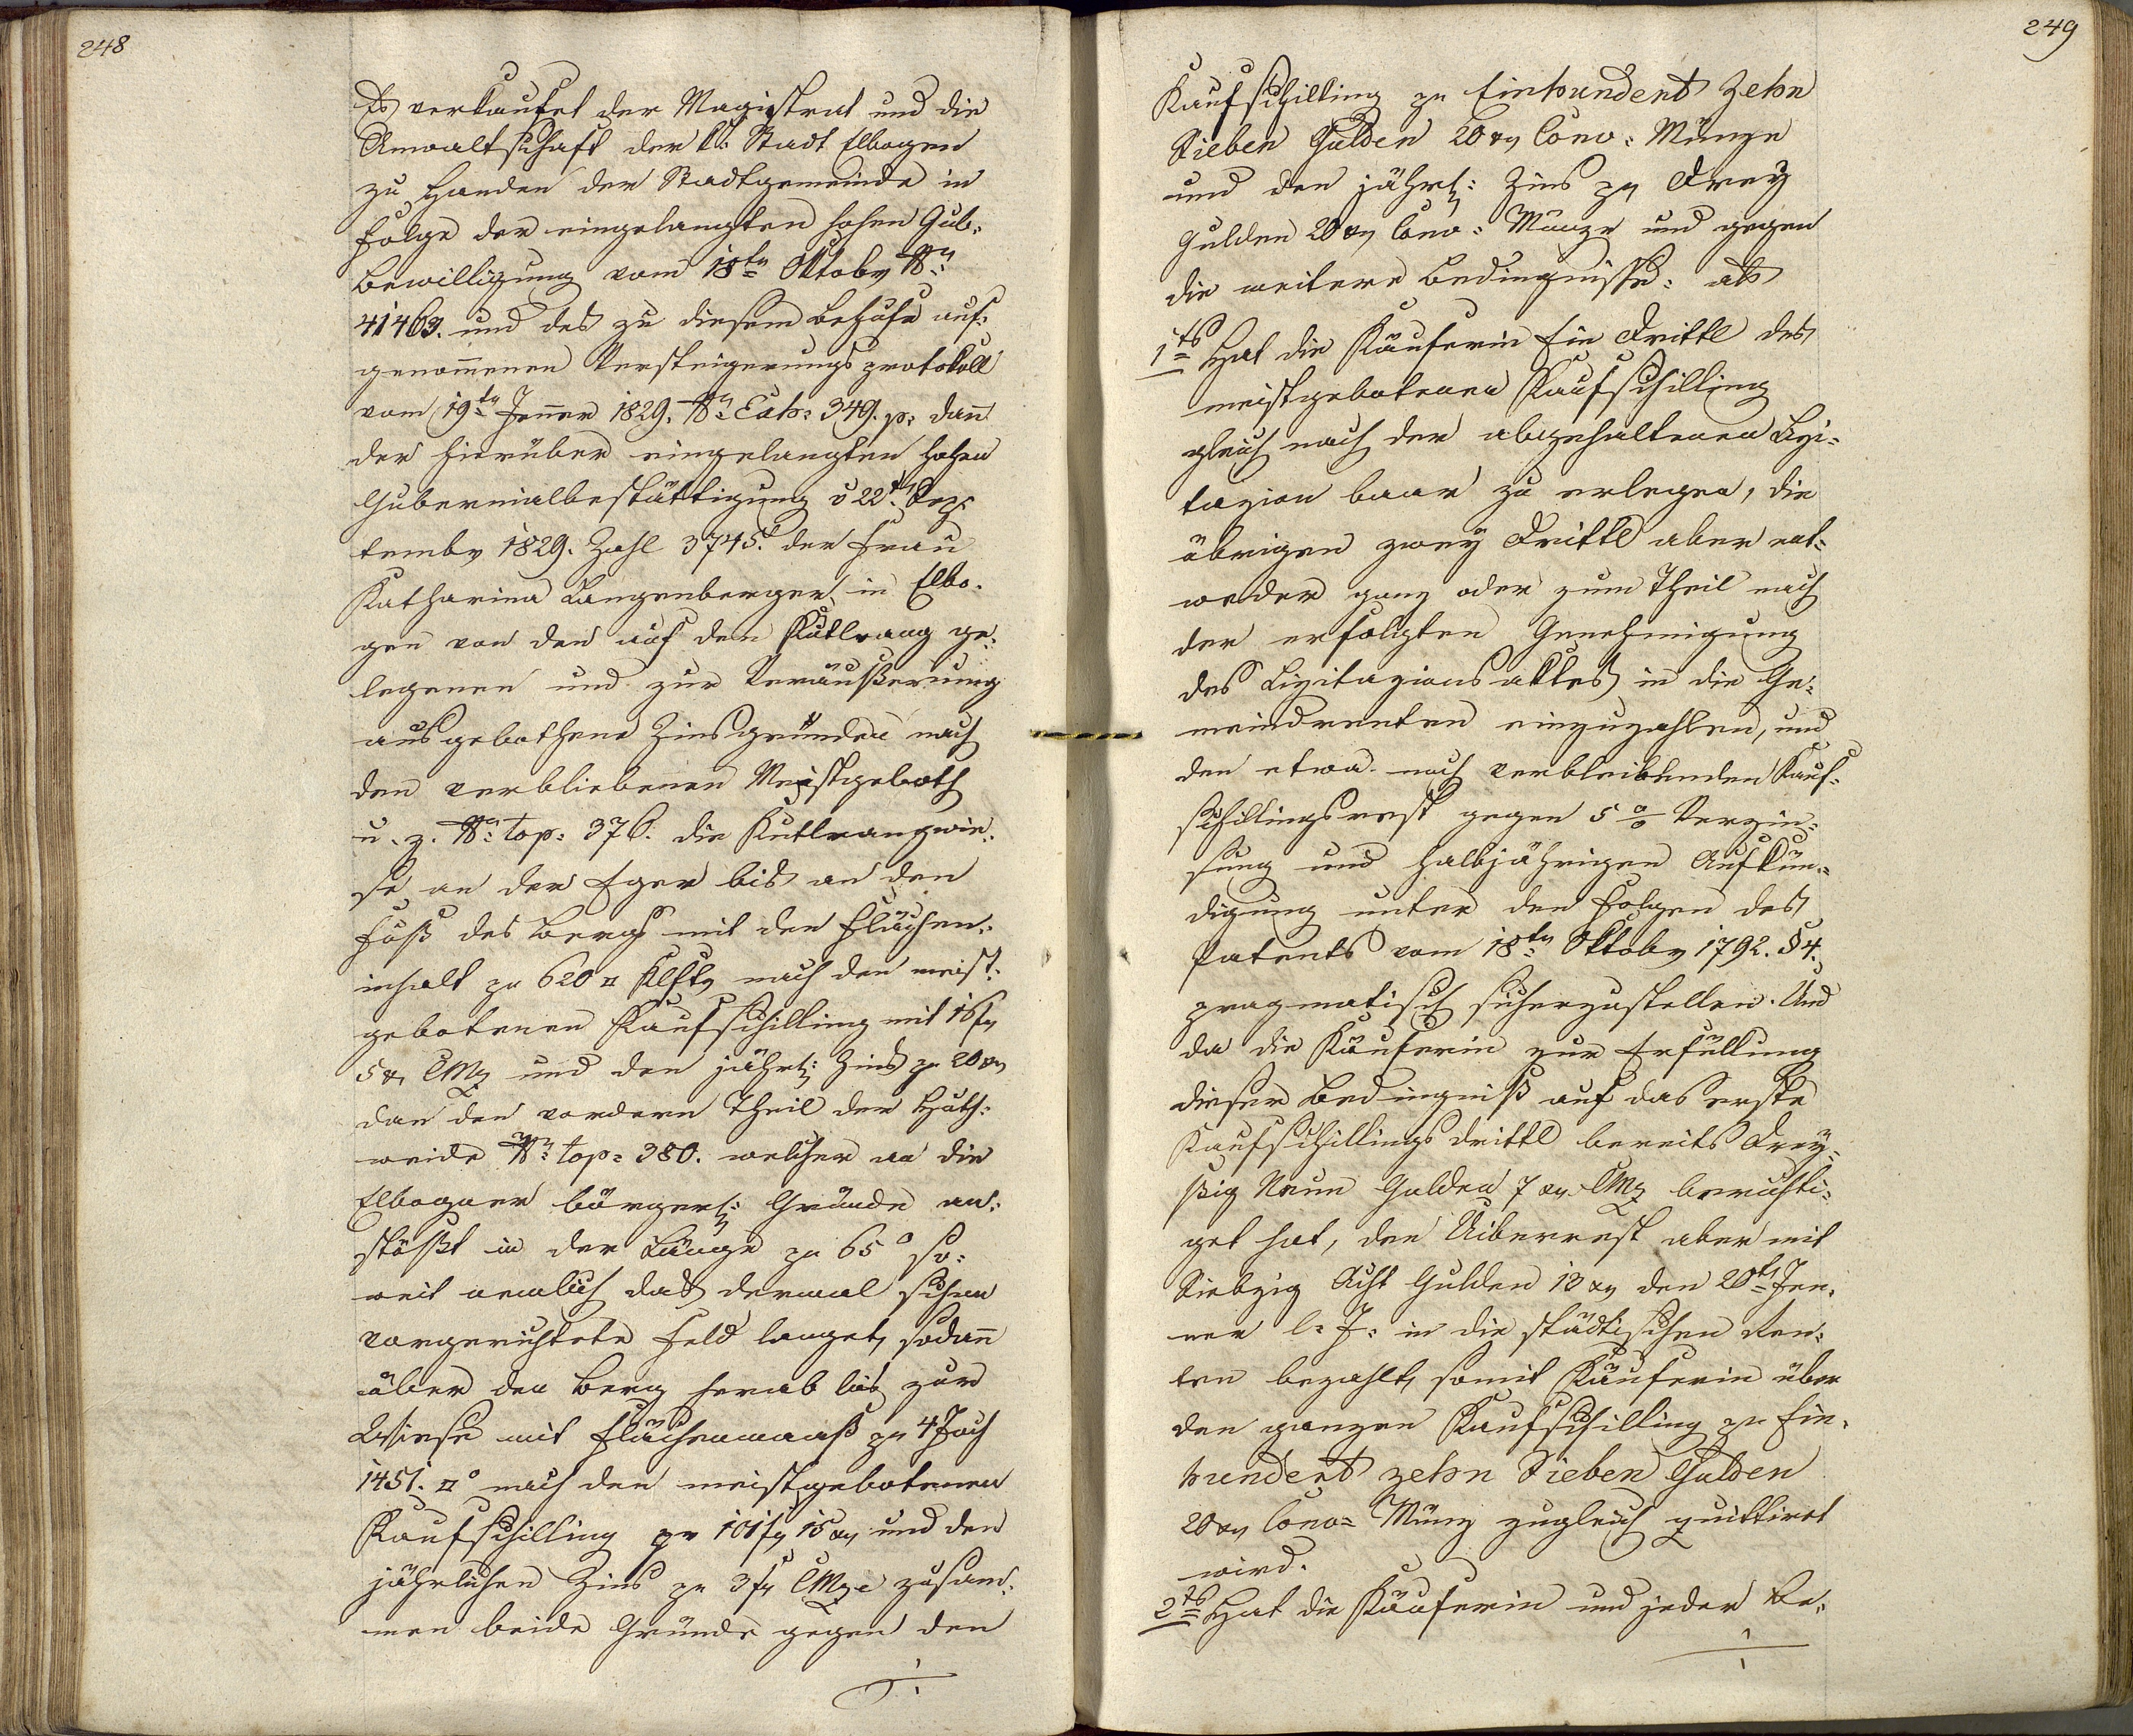 248
Es verkaufet der Magistrat und die
Anwaltschaft der k: Stadt Elbogen
zu Handen der Stadtgemeinde in
Folge der eingelangten hohen Gub:
Bewilligung vom 18tn Oktobr Nr:
41463. und des zu diesem Behufe auf:
genom̅enen Versteigerungsprotokoll
vom 19tn Jenner 1829. Nr: Exh: 349. p: dan̅
der hierüber eingelangten hohen
Gubernialbestättigung v 22t Sep:
tembr 1829. Zahl 3745. der Frau
Katharina Langenberger in Elbo:
gen von den auf den Kutlrang ge:
legenen und zur Veräußerung
ausgebothene Zinsgründen nach
den verbliebenen Meistgeboth
u. z. Nr: top: 376. die Kutlrangwie:
se an der Eger bis an den
Fuß des Bergs mit den Flächen:
inhalt pr 620 □ Klftr nach den meist:
gebotenen Kaufschilling mit 16 fr
5 xr CMz und den jährl: Zins pr 20 xr
dan̅ den vordern Theil der Huth:
weide Nr: top: 380. welcher an die
Elbogner bürgerl: Gründe an:
stößt in der Länge pr 65° so:
weit nemlich das dermal schon
vorgerichtete Feld langet, sodan̅
über den Berg herab bis zur
Wiese mit Flächenmaaß pr 4 Joch
1451. □° nach den meistgebotenen
Kaufschilling pr 101 fr 15 xr und den
jährlichen Zins pr 3 fr CMze zusam:
men beide Gründe gegen den
249
Kaufschilling pr Einhundert Zehn
Sieben Gulden 20 xr Conv: Münze
und den jährl: Zins pr Drey
Gulden 20 xr Conv: Münze und gegen
die weitere Bedingnisse: als
1ts Hat die Käuferin Ein Drittl des
meistgebotenen Kaufschilling
gleich nach der abgehaltenen Lizi:
tazion baar zu erlegen, die
übrigen zwey Drittl aber ent:
weder ganz oder zum Theil nach
der erfolgten Genehmigung
des Lizitazionsaktes in die Ge:
meindrenten einzuzahlen, und
den etwa noch verbleibenden Kauf:
schillingsrest gegen 5 % Verzin:
sung und halbjährigen Aufkün:
digung unter den Folgen des
Patents vom 18tn Oktobr 1792. § 4.
pragmatisch sicherzustellen. Und
da die Käuferin zur Erfüllung
dieser Bedingniß auf das erste
Kaufschillingsdrittl bereits Drey:
ßig Neun Gulden 7 xr CMz berichti:
get hat, den Uiberrest aber mit
Siebzig Acht Gulden 13 xr den 20tn Jen:
ner l: J: in die städtischen Ren:
ten bezahlt, somit Käuferin über
den ganzen Kaufschilling pr Ein:
hundert zehn Sieben Gulden
20 xr Conv: Münz zugleich quittirt
wird.
2ts Hat die Käuferin und jeder Be: